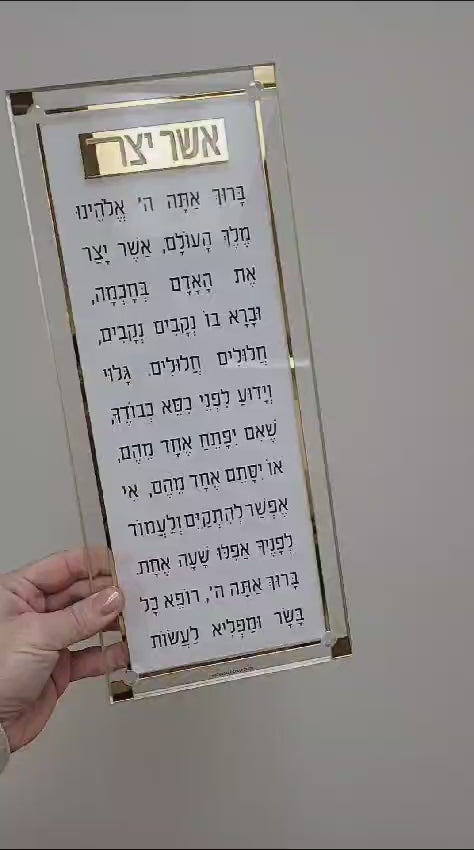 אשר יצר
בָּרוּךְ אַתָּה ה' אֱלֹהֵינוּ
מֶלֶךְ הָעוֹלָם, אֲשֶׁר יָצַר
אֶת הָאָדָם בְּחָכְמָה,
וּבָרָא בוֹ נְקָבִים נְקָבִים,
חֲלוּלִים חֲלוּלִים. גָּלוּי
וְיָדוּעַ לִפְנֵי כִסֵּא כְבוֹדֶךָ,
שֶׁאִם יִפָּתֵחַ אֶחָד מֵהֶם,
אוֹ יִסָּתֵם אֶחָד מֵהֶם, אִי
אֶפְשַׁר לְהִתְקַיֵּם וְלַעֲמוֹד
לְפָנֶיךָ אֲפִלּוּ שָׁעָה אֶחָת
בָּרוּךְ אַתָּה ה', רוֹפֵא כָל
בָּשָׂר וּמַפְלִיא לַעֲשׂוֹת